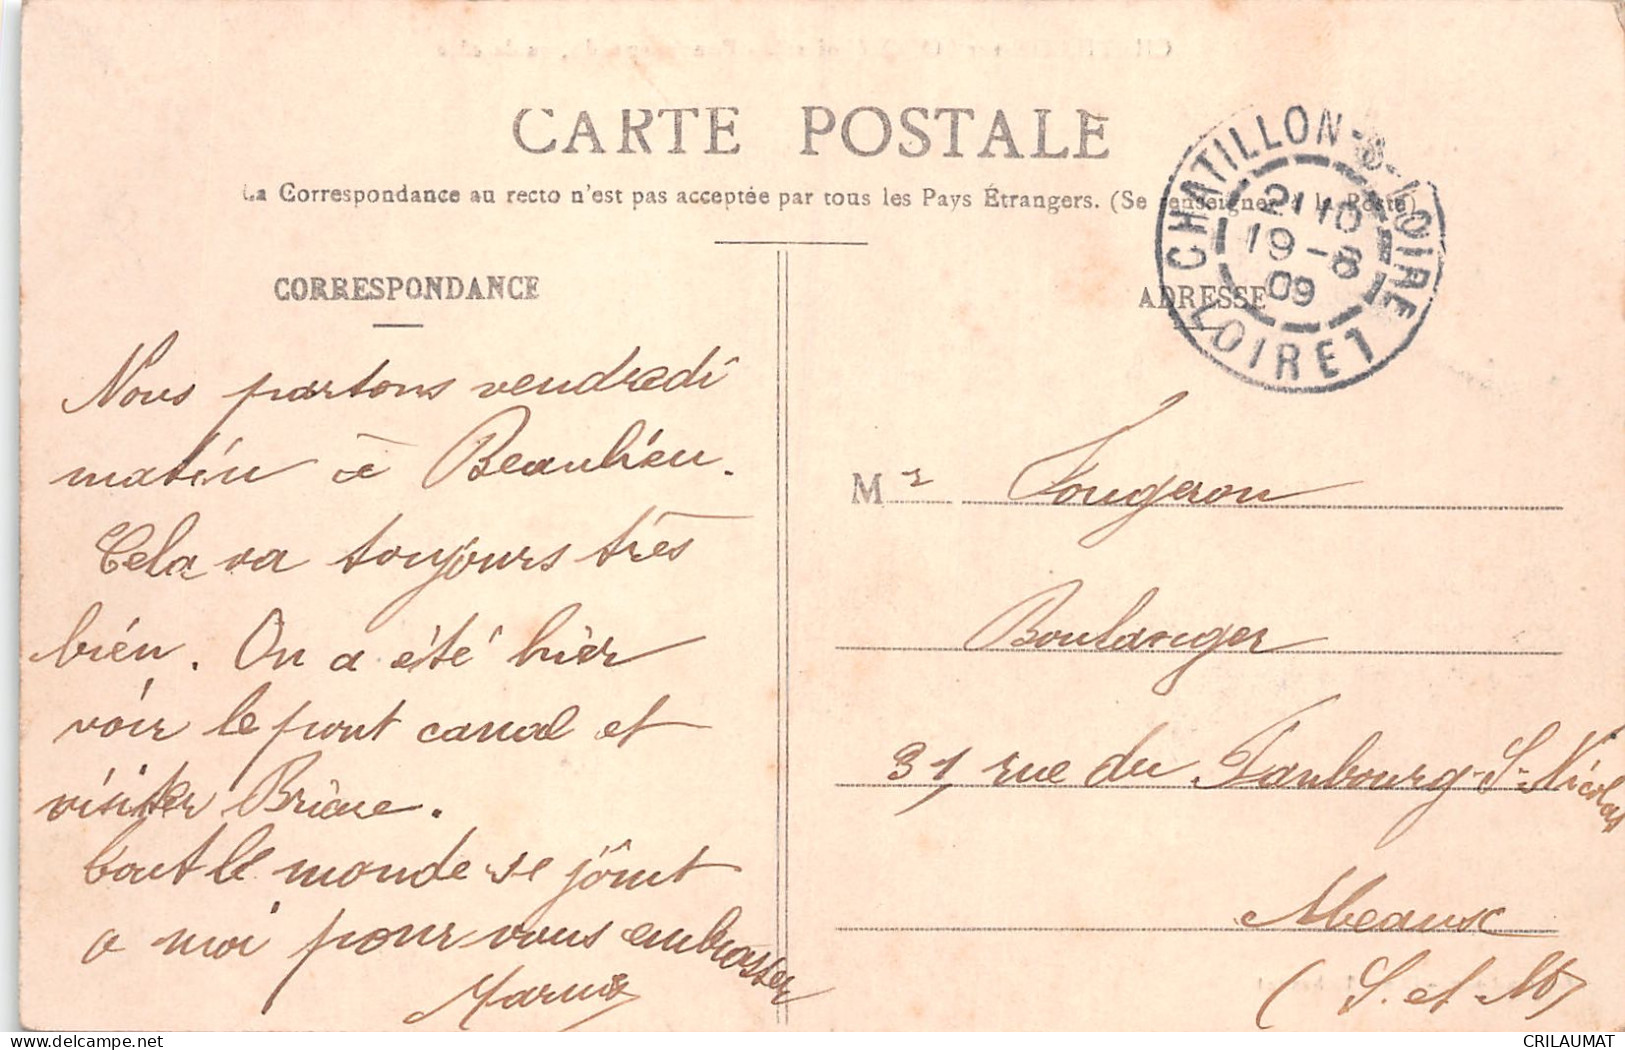 CARTE POSTALE
La Correspondance au recto n'est pas acceptée par tous les Pays Étrangers. (Se renseigner à la Poste)
CHATILLON-S-LOIRE
21 10
19-8
09
LOIRET
CORRESPONDANCE
Nous partons vendredi
matin à Beaulieu.
Cela va toujours très
bien. On a été hier
voir le pont canal et
visiter Briare.
Tout le monde se joint
a moi pour vous embrasser
ADRESSE
Mr Fougeron
Boulanger
31, rue du Faubourg-St-Nicolas
Meaux
(S. et M)
CRILAUMAT